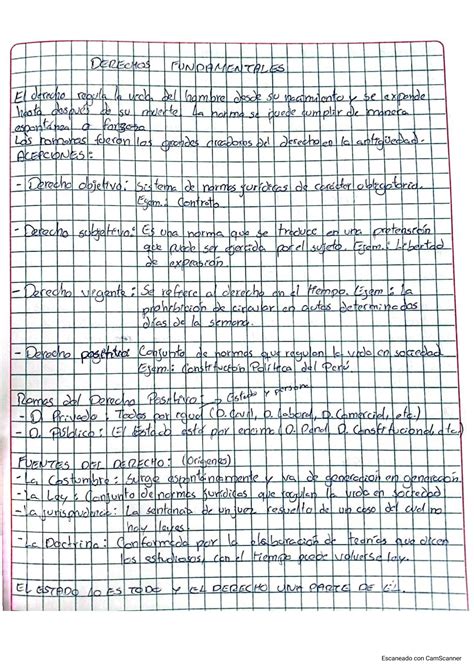 DERECHOS FUNDAMENTALES
El derecho regula la vida del hombre desde su nacimiento y se expande
hasta después de su muerte. La norma se puede cumplir de manera
espontánea o forzosa
Los romanos fueron los grandes creadores del derecho en la antigüedad.
ACEPCIONES:
- Derecho objetivo: Sistema de normas jurídicas de carácter obligatorio.
Ejem.: Contrato
- Derecho subjetivo: Es una norma que se traduce en una pretensión
que puede ser ejercida por el sujeto. Ejem.: Libertad
de expresión
- Derecho vigente: Se refiere al derecho en el tiempo. Ejem: La
prohibición de circular en autos determinados
días de la semana.
- Derecho positivo: Conjunto de normas que regulan la vida en sociedad
Ejem.: Constitución Política del Perú
Ramas del Derecho Positivo: → Estado y persona
- D. Privado: Todos por igual (D. Civil, D. Laboral, D. Comercial, etc.)
- D. Público: (El Estado está por encima (D. Penal D. Constitucional, etc.)
FUENTES DEL DERECHO: (Orígenes)
- La Costumbre: Surge espontáneamente y va de generación en generación.
- La Ley: Conjunto de normas jurídicas que regulan la vida en sociedad
- La jurisprudencia: La sentencia de un juez resuelto de un caso del cual no
hay leyes.
- La Doctrina: Conformada por la elaboración de teorías que dicen
los estudiosos, con el tiempo puede volverse ley.
EL ESTADO LO ES TODO Y EL DERECHO UNA PARTE DE ÉL.
Escaneado con CamScanner